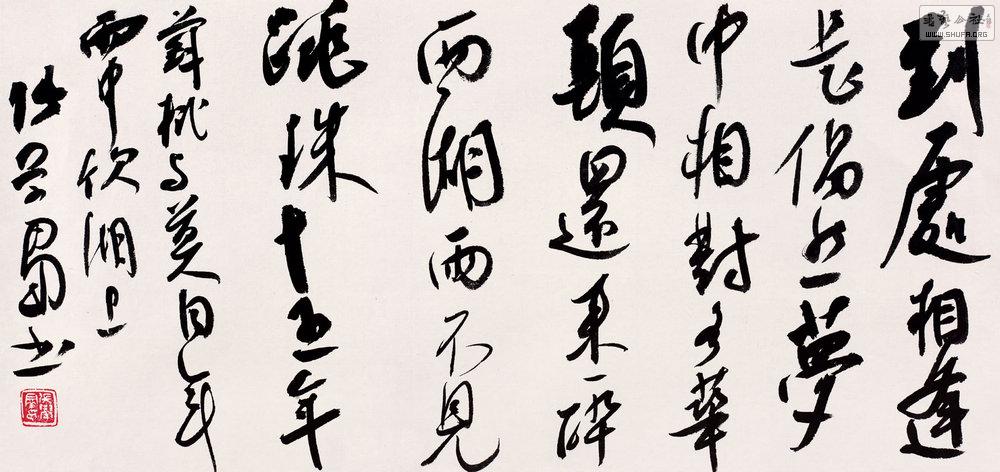 到處相逢
是偶然夢
中相對各華
顛還来一醉
西湖雨不見
跳珠十五年
蘇軾与莫同年
雨中飲湖上
書法公社
WWW.SHUFA.ORG